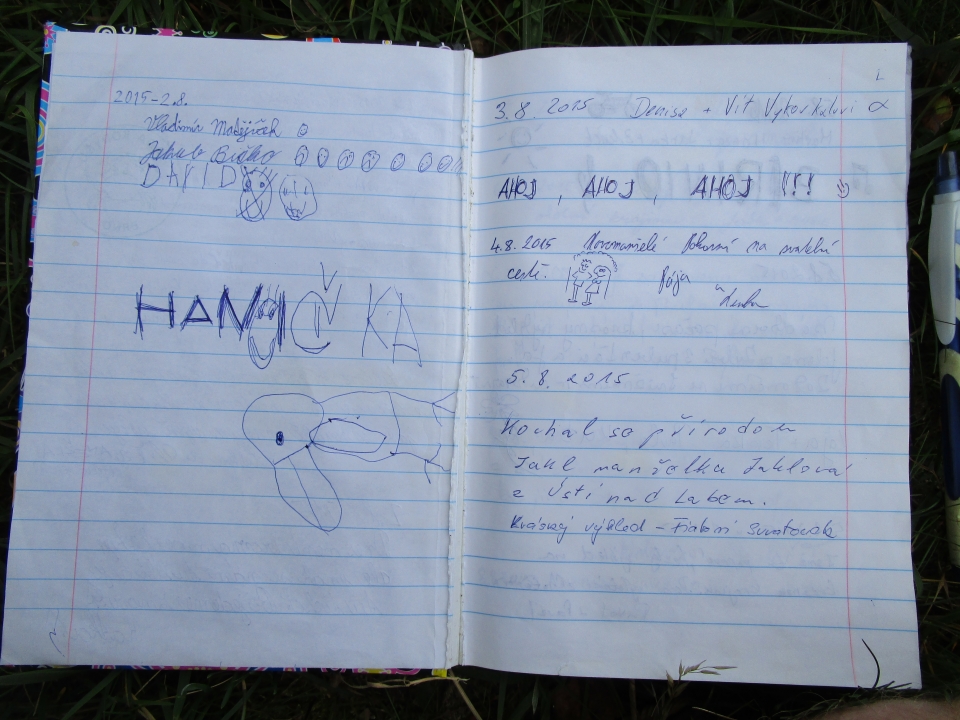 2015-2.8.
Vladimír Matějíček
Jakub
DAVID
HANIČKA
3.8. 2015 Denisa + Vít Vykoukalovi
AHOJ, AHOJ, AHOJ !!!
4.8.2015 Novomanželé na svatební
cestě. Pája
a
5.8. 2015
Kochal se přírodou
Jakl manželka Jaklová
z Ústí nad Labem.
Krásný výhled -